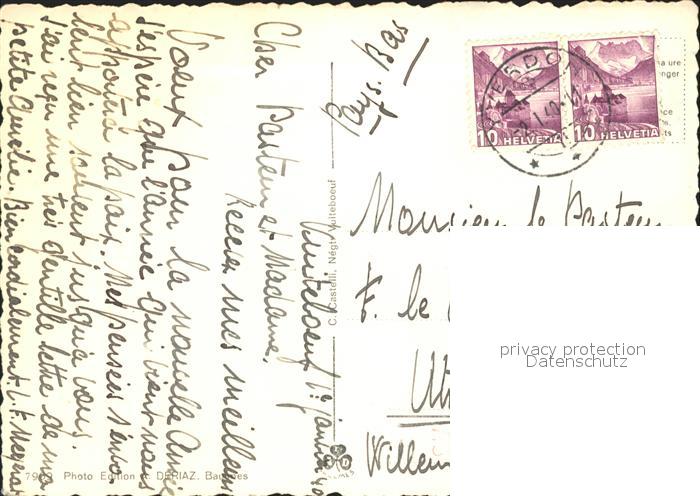 Vuiteboeuf 1er janvier 40
Cher Pasteur et Madame,
Recevez mes meilleurs
voeux pour la nouvelle Année
j'espère que l'année qui vient nous
apportera la paix. Mes pensées s'envo-
lent bien souvent jusqu'à vous.
J'ai reçu une très gentille lettre de ma
petite Amélie. Bien cordialement.
C. Castelli, Négt. Vuiteboeuf
7943 Photo Edition A. DERIAZ, Baulmes
Pays-Bas
Monsieur le Pasteur
F. le
Willem
YVERDON
10 HELVETIA
10 HELVETIA
privacy protection
Datenschutz